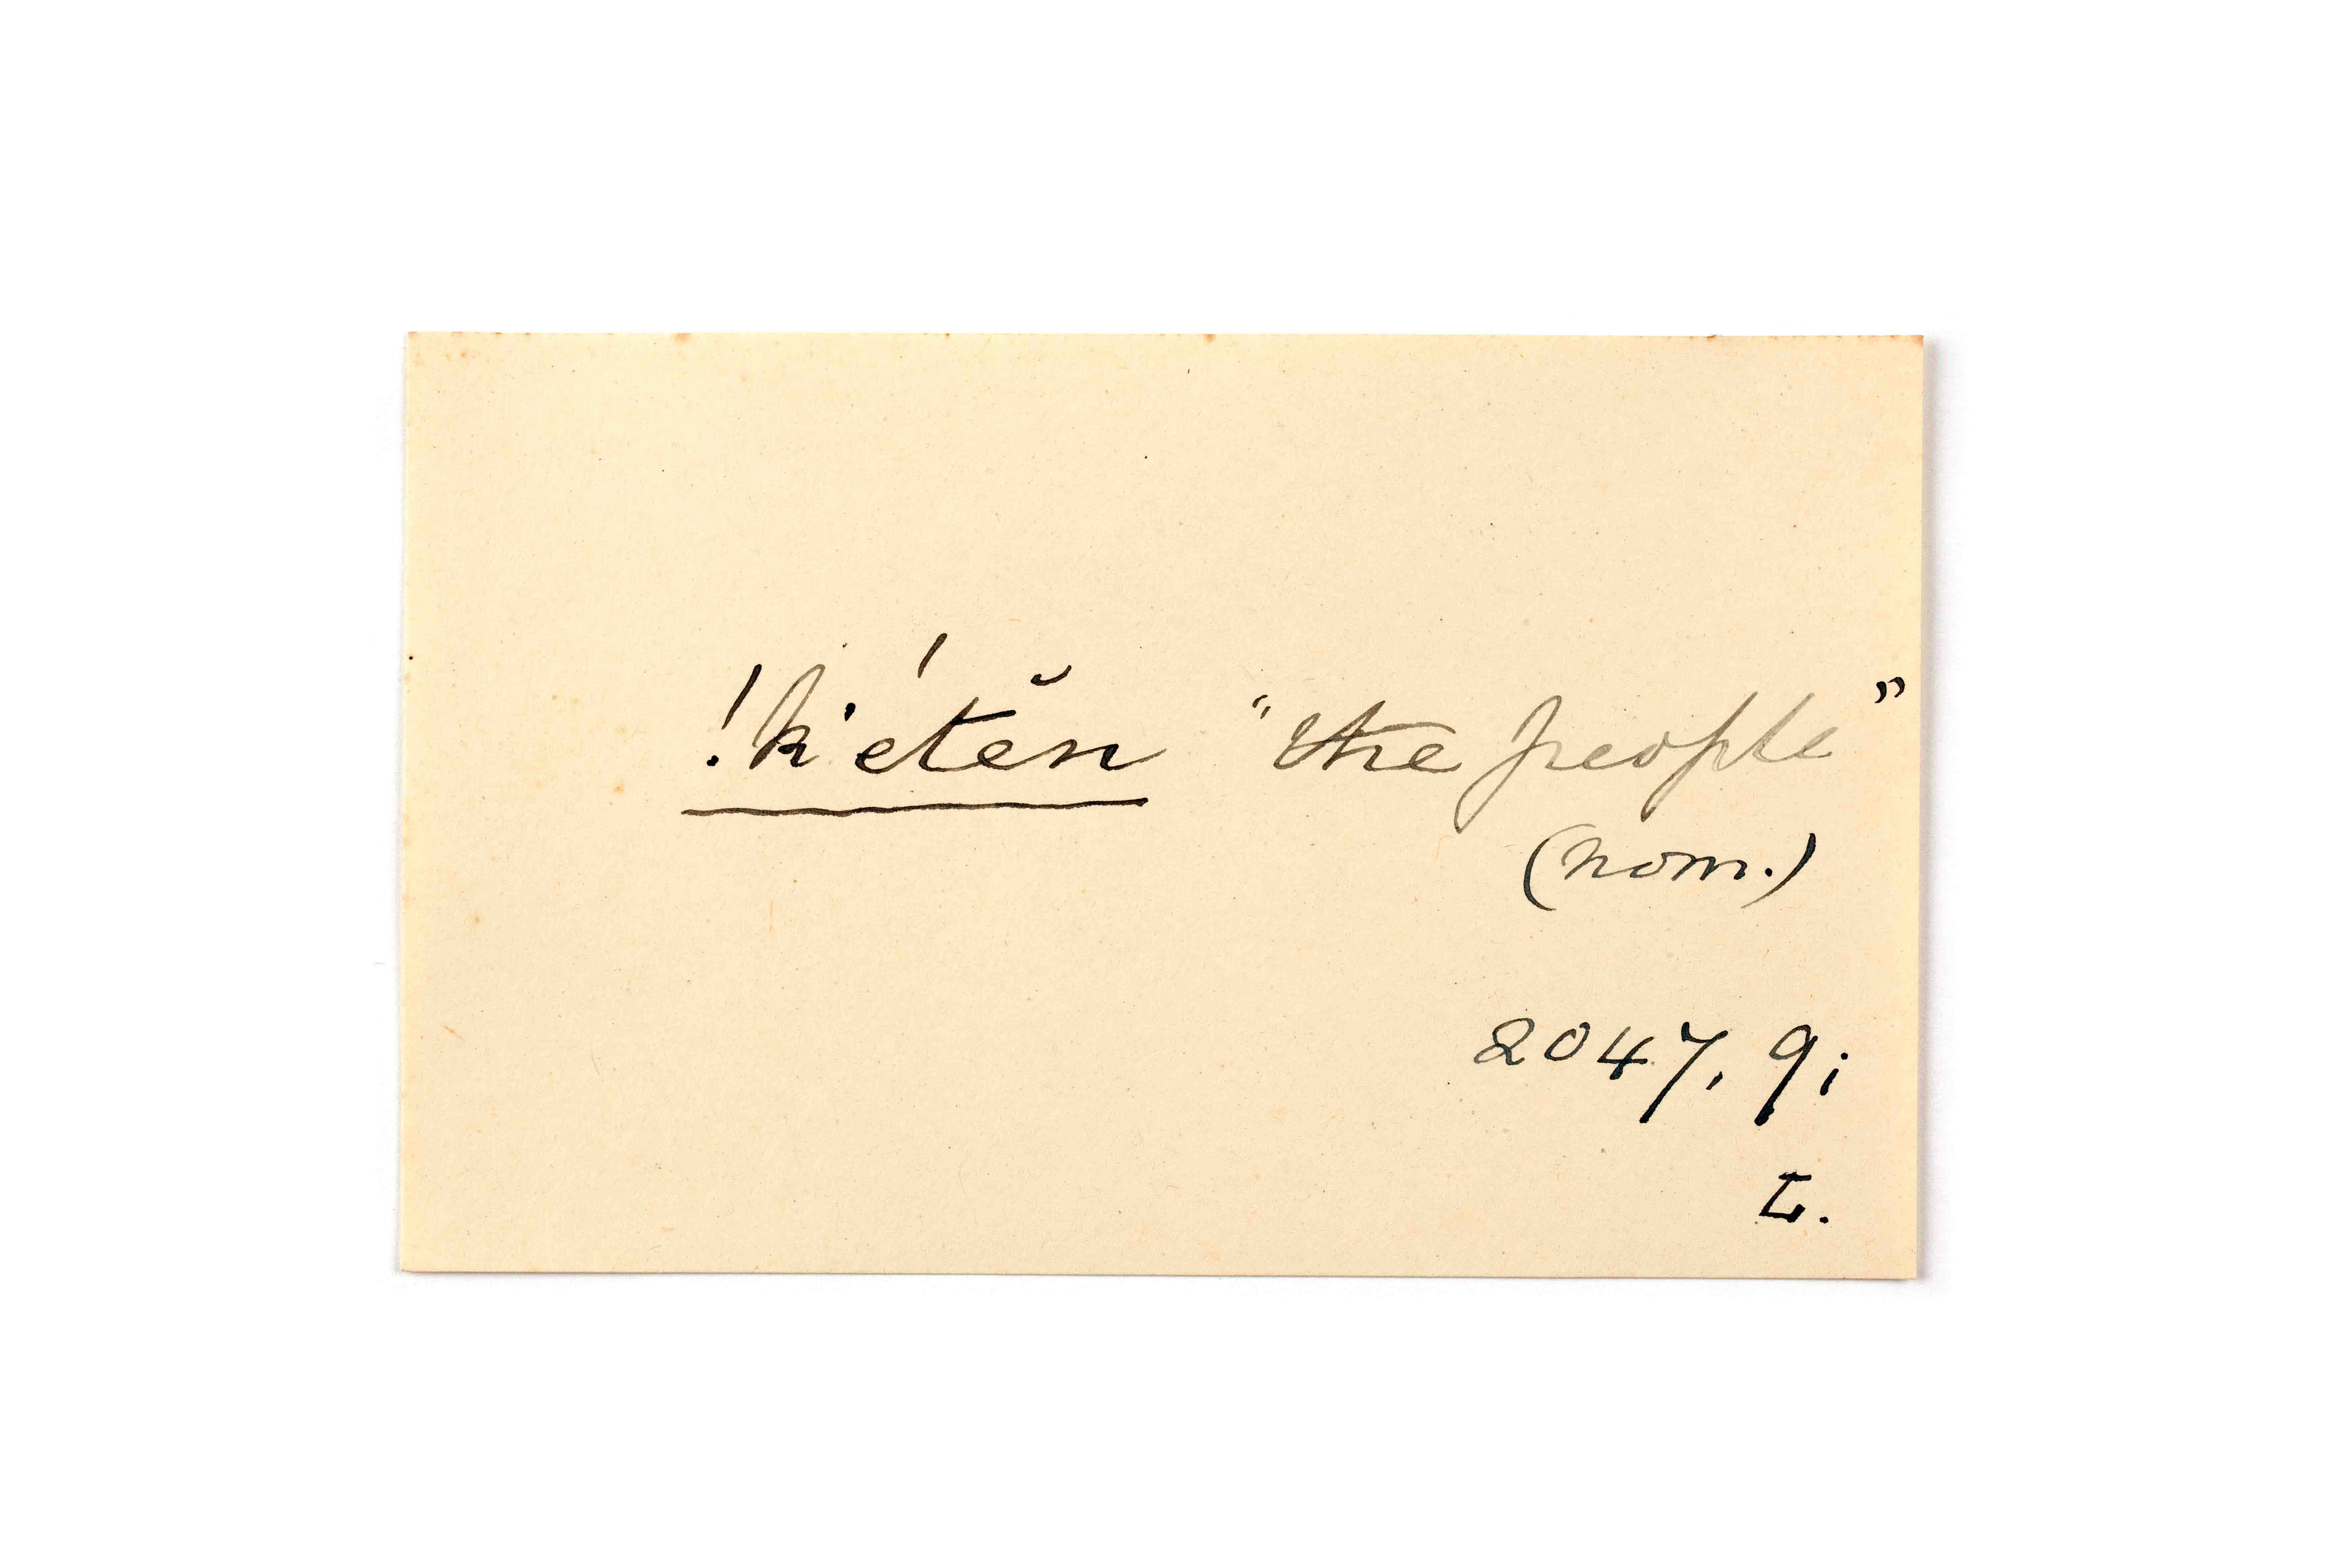 !k'étĕn "the people"
(nom.)
2047, 9;
L.